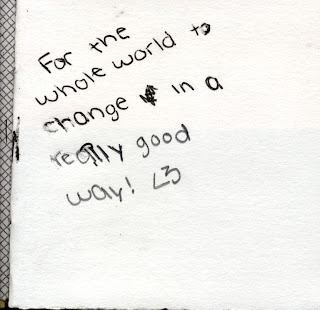 For the
whole world to
change in a
really good
way! <3